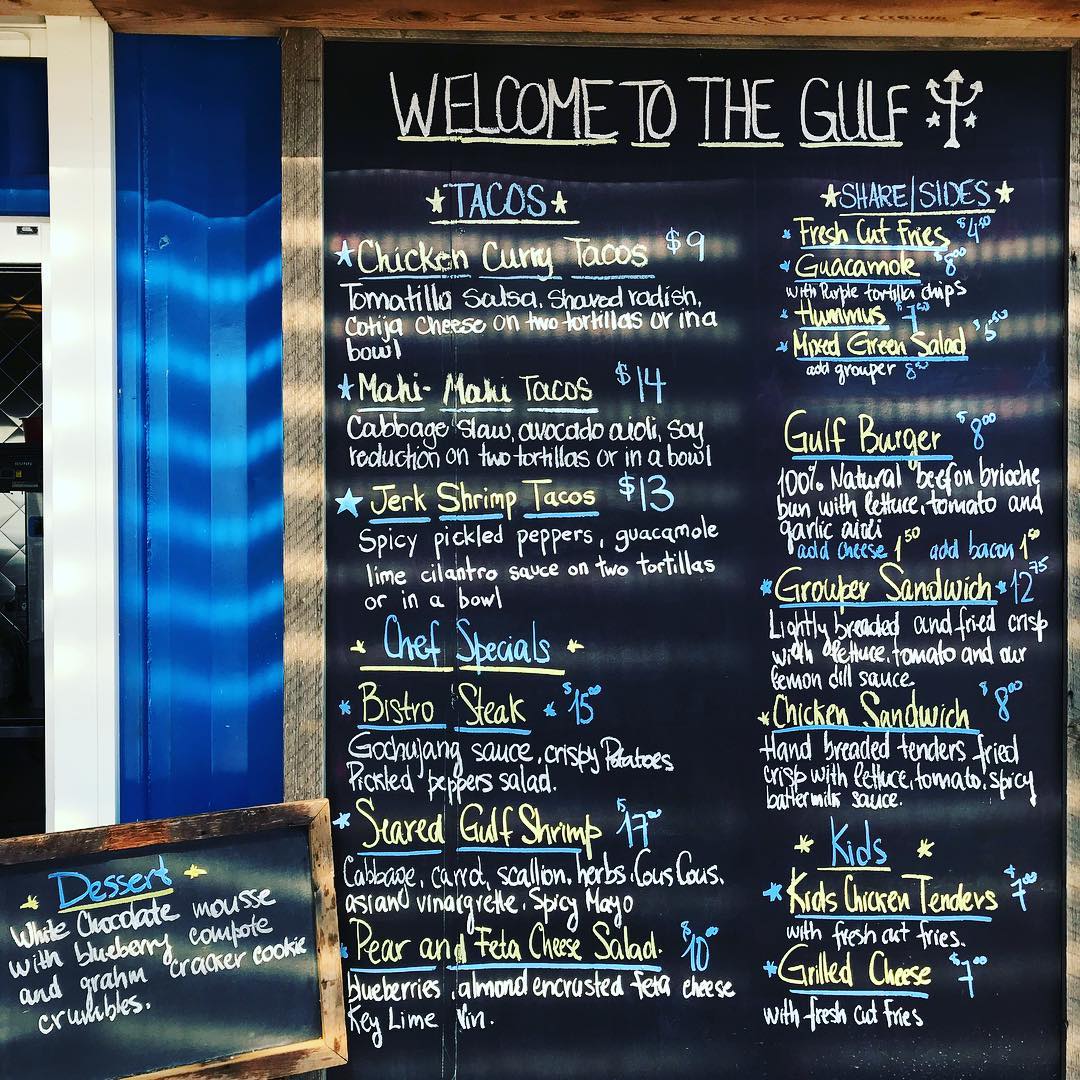 WELCOME TO THE GULF
TACOS
Chicken Curry Tacos $9
Tomatillo Salsa, shaved radish,
Cotija cheese on two tortillas or in a
bowl
Mahi-Mahi Tacos $14
Cabbage slaw, avocado aioli, soy
reduction on two tortillas or in a bowl
Jerk Shrimp Tacos $13
Spicy pickled peppers, guacamole
lime cilantro sauce on two tortillas
or in a bowl
Chef Specials
Bistro Steak $15.00
Gochujang sauce, crispy Potatoes
Pickled peppers salad.
Seared Gulf Shrimp $17.00
Cabbage, carrot, scallion, herbs, Cous Cous,
asian vinaigrette, Spicy Mayo
Pear and Feta Cheese Salad. $10.00
blueberries, almond encrusted feta cheese
Key Lime Vin.
SHARE/SIDES
Fresh Cut Fries $4.50
Guacamole $8.00
with Purple tortilla chips
Hummus $7.50
Mixed Green Salad $5.50
add grouper 8.50
Gulf Burger $8.00
100% Natural beef on brioche
bun with lettuce, tomato and
garlic aioli
add cheese 1.50 add bacon 1.50
Grouper Sandwich 12.75
Lightly breaded and fried crisp
with lettuce, tomato and our
lemon dill sauce
Chicken Sandwich $8.00
Hand breaded tenders fried
crisp with lettuce, tomato, spicy
buttermilk sauce.
Kids
Kids Chicken Tenders $7.00
with fresh cut fries.
Grilled Cheese $7.00
with fresh cut fries
Dessert
White Chocolate mousse
with blueberry compote
and grahm cracker cookie
crumbles.